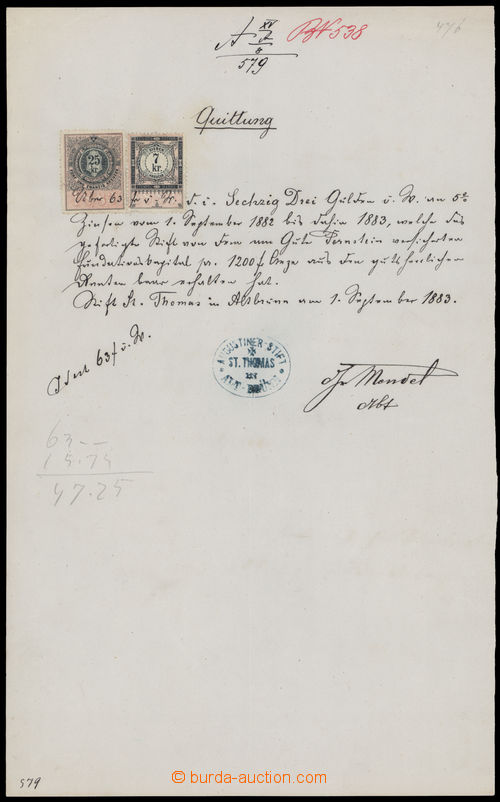 A XV/A/a
579
PN 538
476
Quittung
25 kr.
7 kr.
Über 63 f ö. W. d. i. Sechzig Drei Gulden ö. W. an 5%
Zinsen vom 1. September 1882 bis dahin 1883, welche das
gefertigte Stift von dem am Gute Pernstein versicherten
Fundationskapital pr. 1200 f aus den gutsherrlichen
Renten baar erhalten hat.
Stift St. Thomas in Altbrünn am 1. September 1883.
Idest 63 f ö. W.
AUGUSTINER-STIFT
ST. THOMAS
IN
ALT-BRÜNN
Gr Mendel
Abt
63 --
15.75
47.25
579
© burda-auction.com